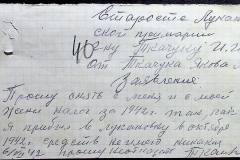 Старосте Лукаш
ской примарии
40 г-ну Ткачуку И. 2.
От Ткачука Якова
Заявление
Прошу снять с меня и с моей
жены налог за 1942г. так как
Я прибыл в Лукановку в октября
1942г средств не имею никаких